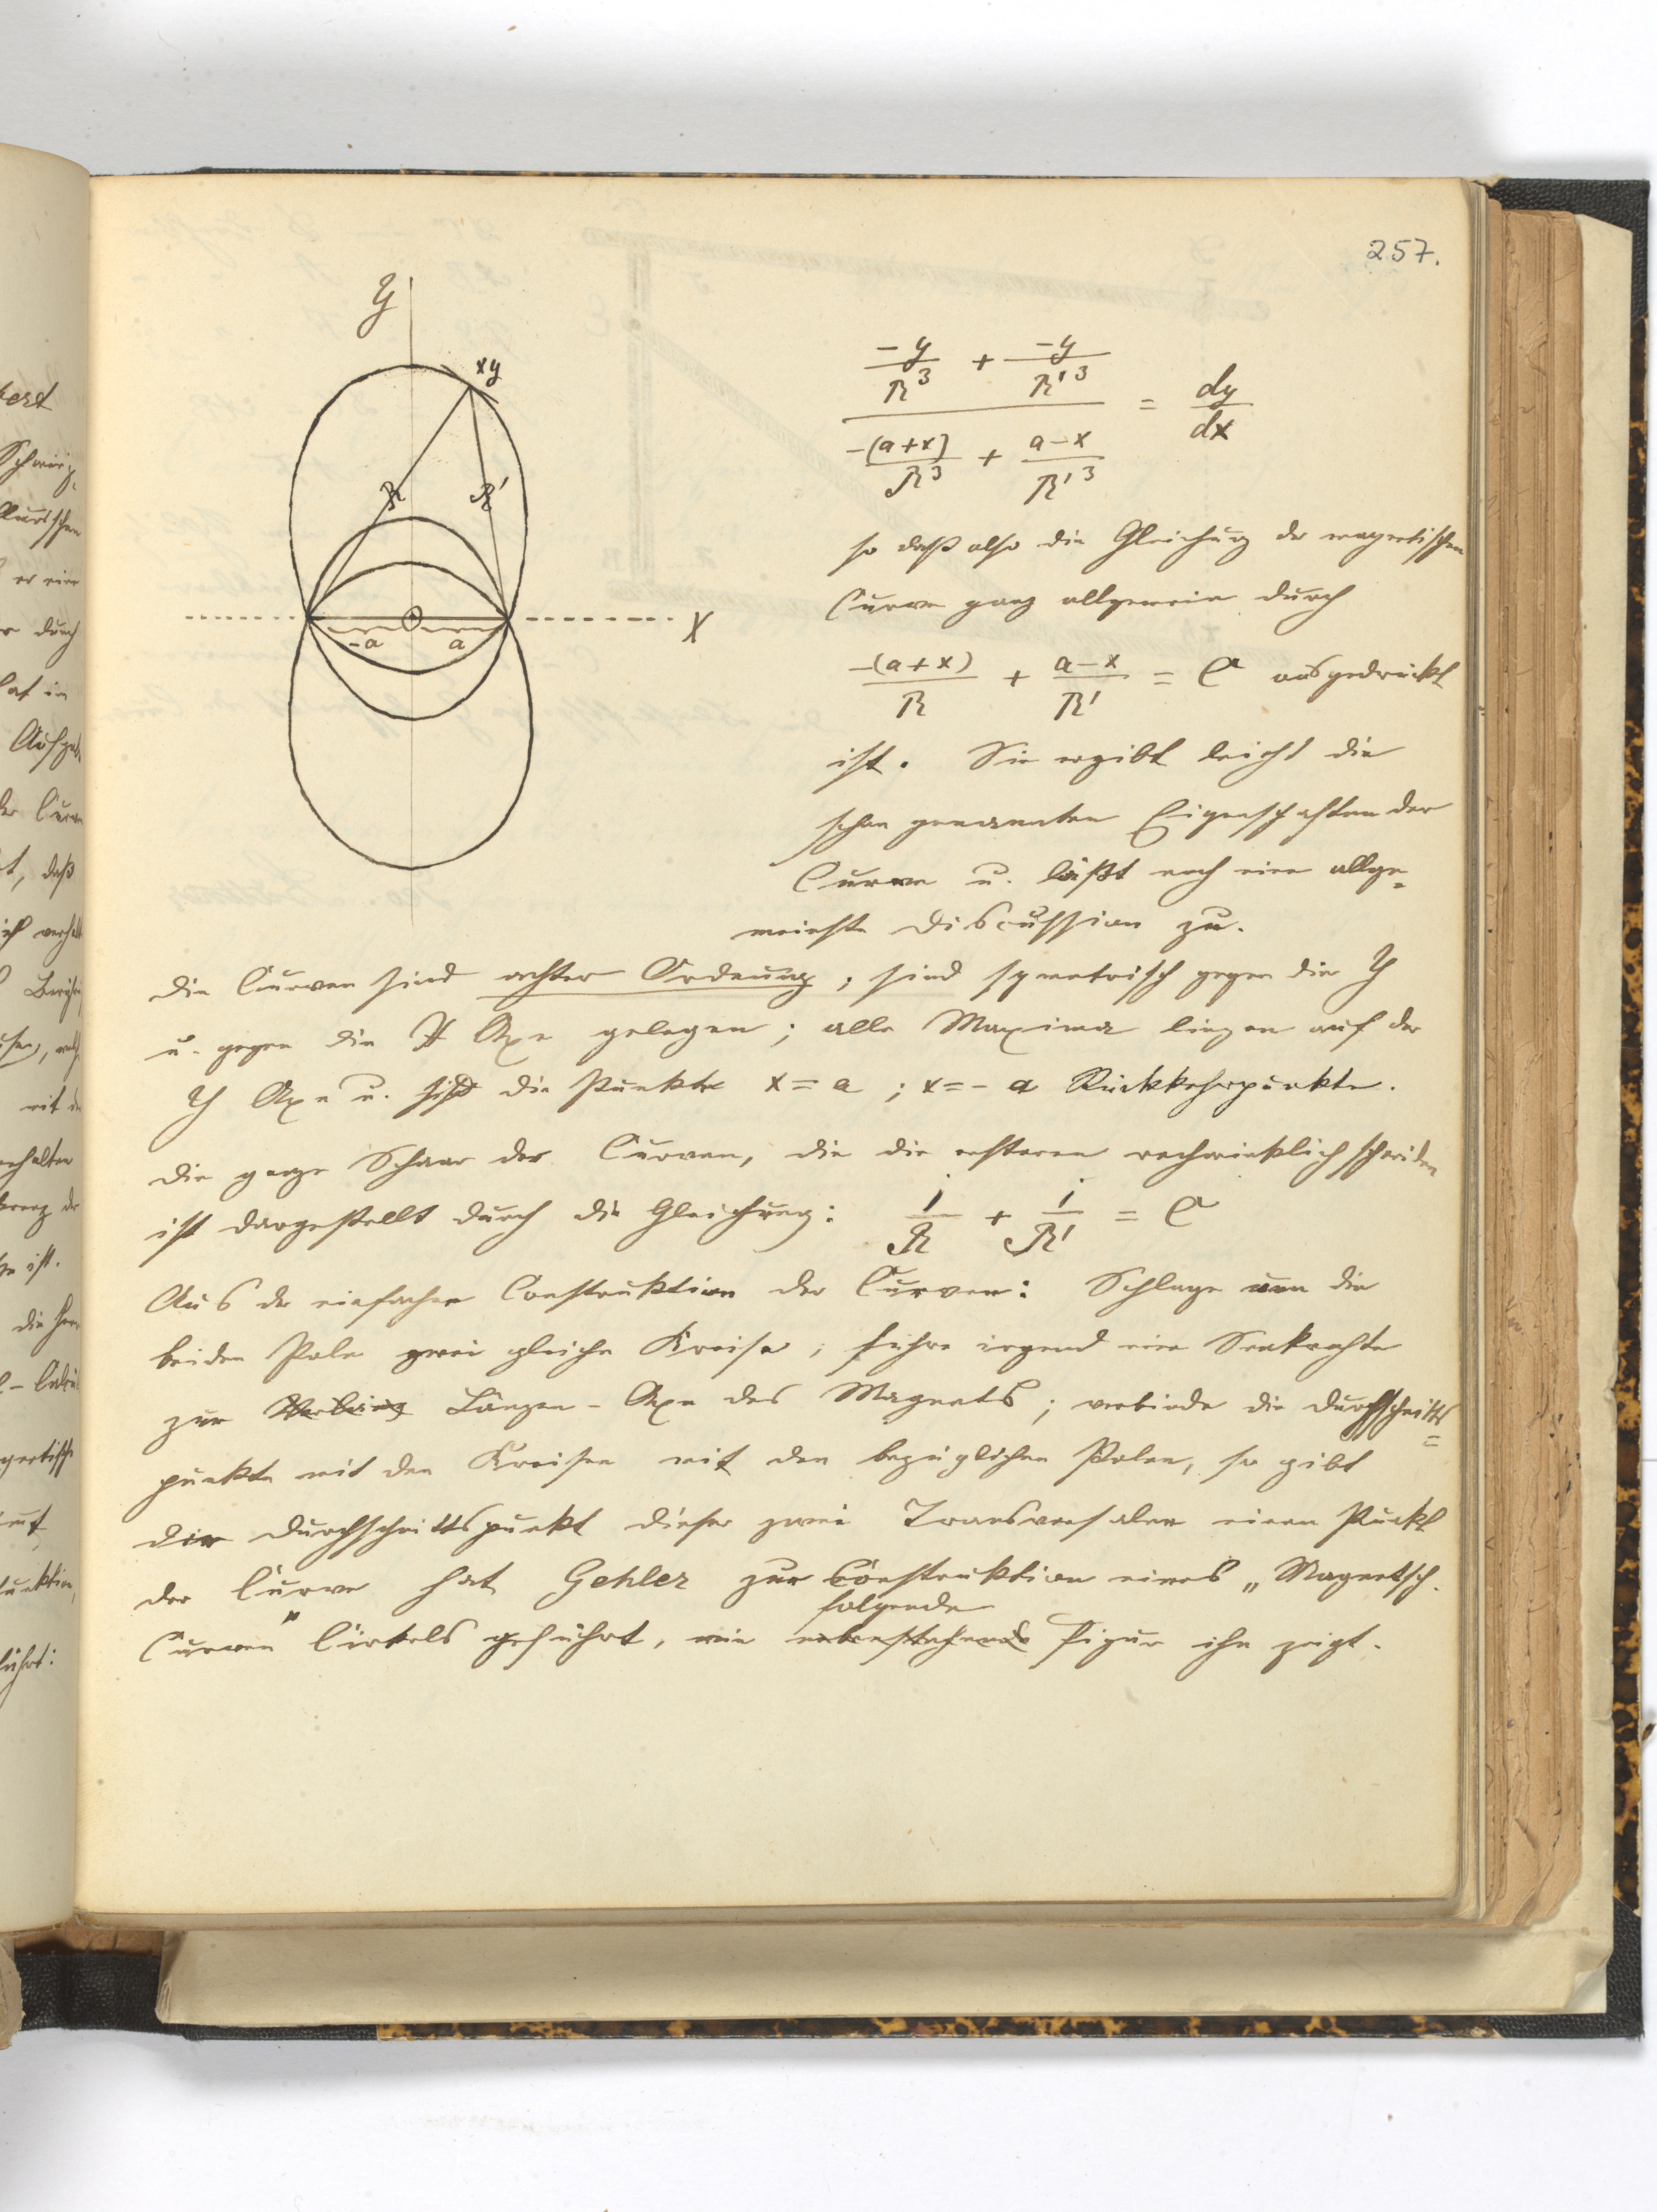 257.
y
xy
R R'
-a a
X
-y/R³ + -y/R'³
= dy/dx
-(a+x)/R³ + a-x/R'³
so daß also die Gleichung der magnetischen
Curve ganz allgemein durch
-(a+x)/R + a-x/R' = C ausgedrückt
ist. Sie ergibt leicht die
schon genannten Eigenschaften der
Curve u. läßt noch eine allge=
meinste Discussion zu.
Die Curven sind achter Ordnung; sind symetrisch gegen die Y
u. gegen die X Axe gelegen; alle Maxima liegen auf der
Y Axe u. die Punkte x = a ; x = - a Rückkehrpunkte.
Die ganze Schaar der Curven, die die ersteren rechwinklich schneiden
ist dargestellt durch die Gleichung: 1/R + 1/R' = C
Aus der einfachen Construktion der Curven: Schlage um die
beiden Pole zwei gleiche Kreise, führe irgend eine Senkrechte
zur Längen-Axe des Magnets; verbinde die Durchschnitts
=
punkte mit den Kreisen mit den bezüglichen Polen, so gibt
der Durchschnittspunkt dieser zwei Transversalen einen Punkt
der Curve hat Gehler zur Construktion eines „Magnetsch.
folgende
Curven" Cirkels geführt, wie nebenstehende Figur ihn zeigt.